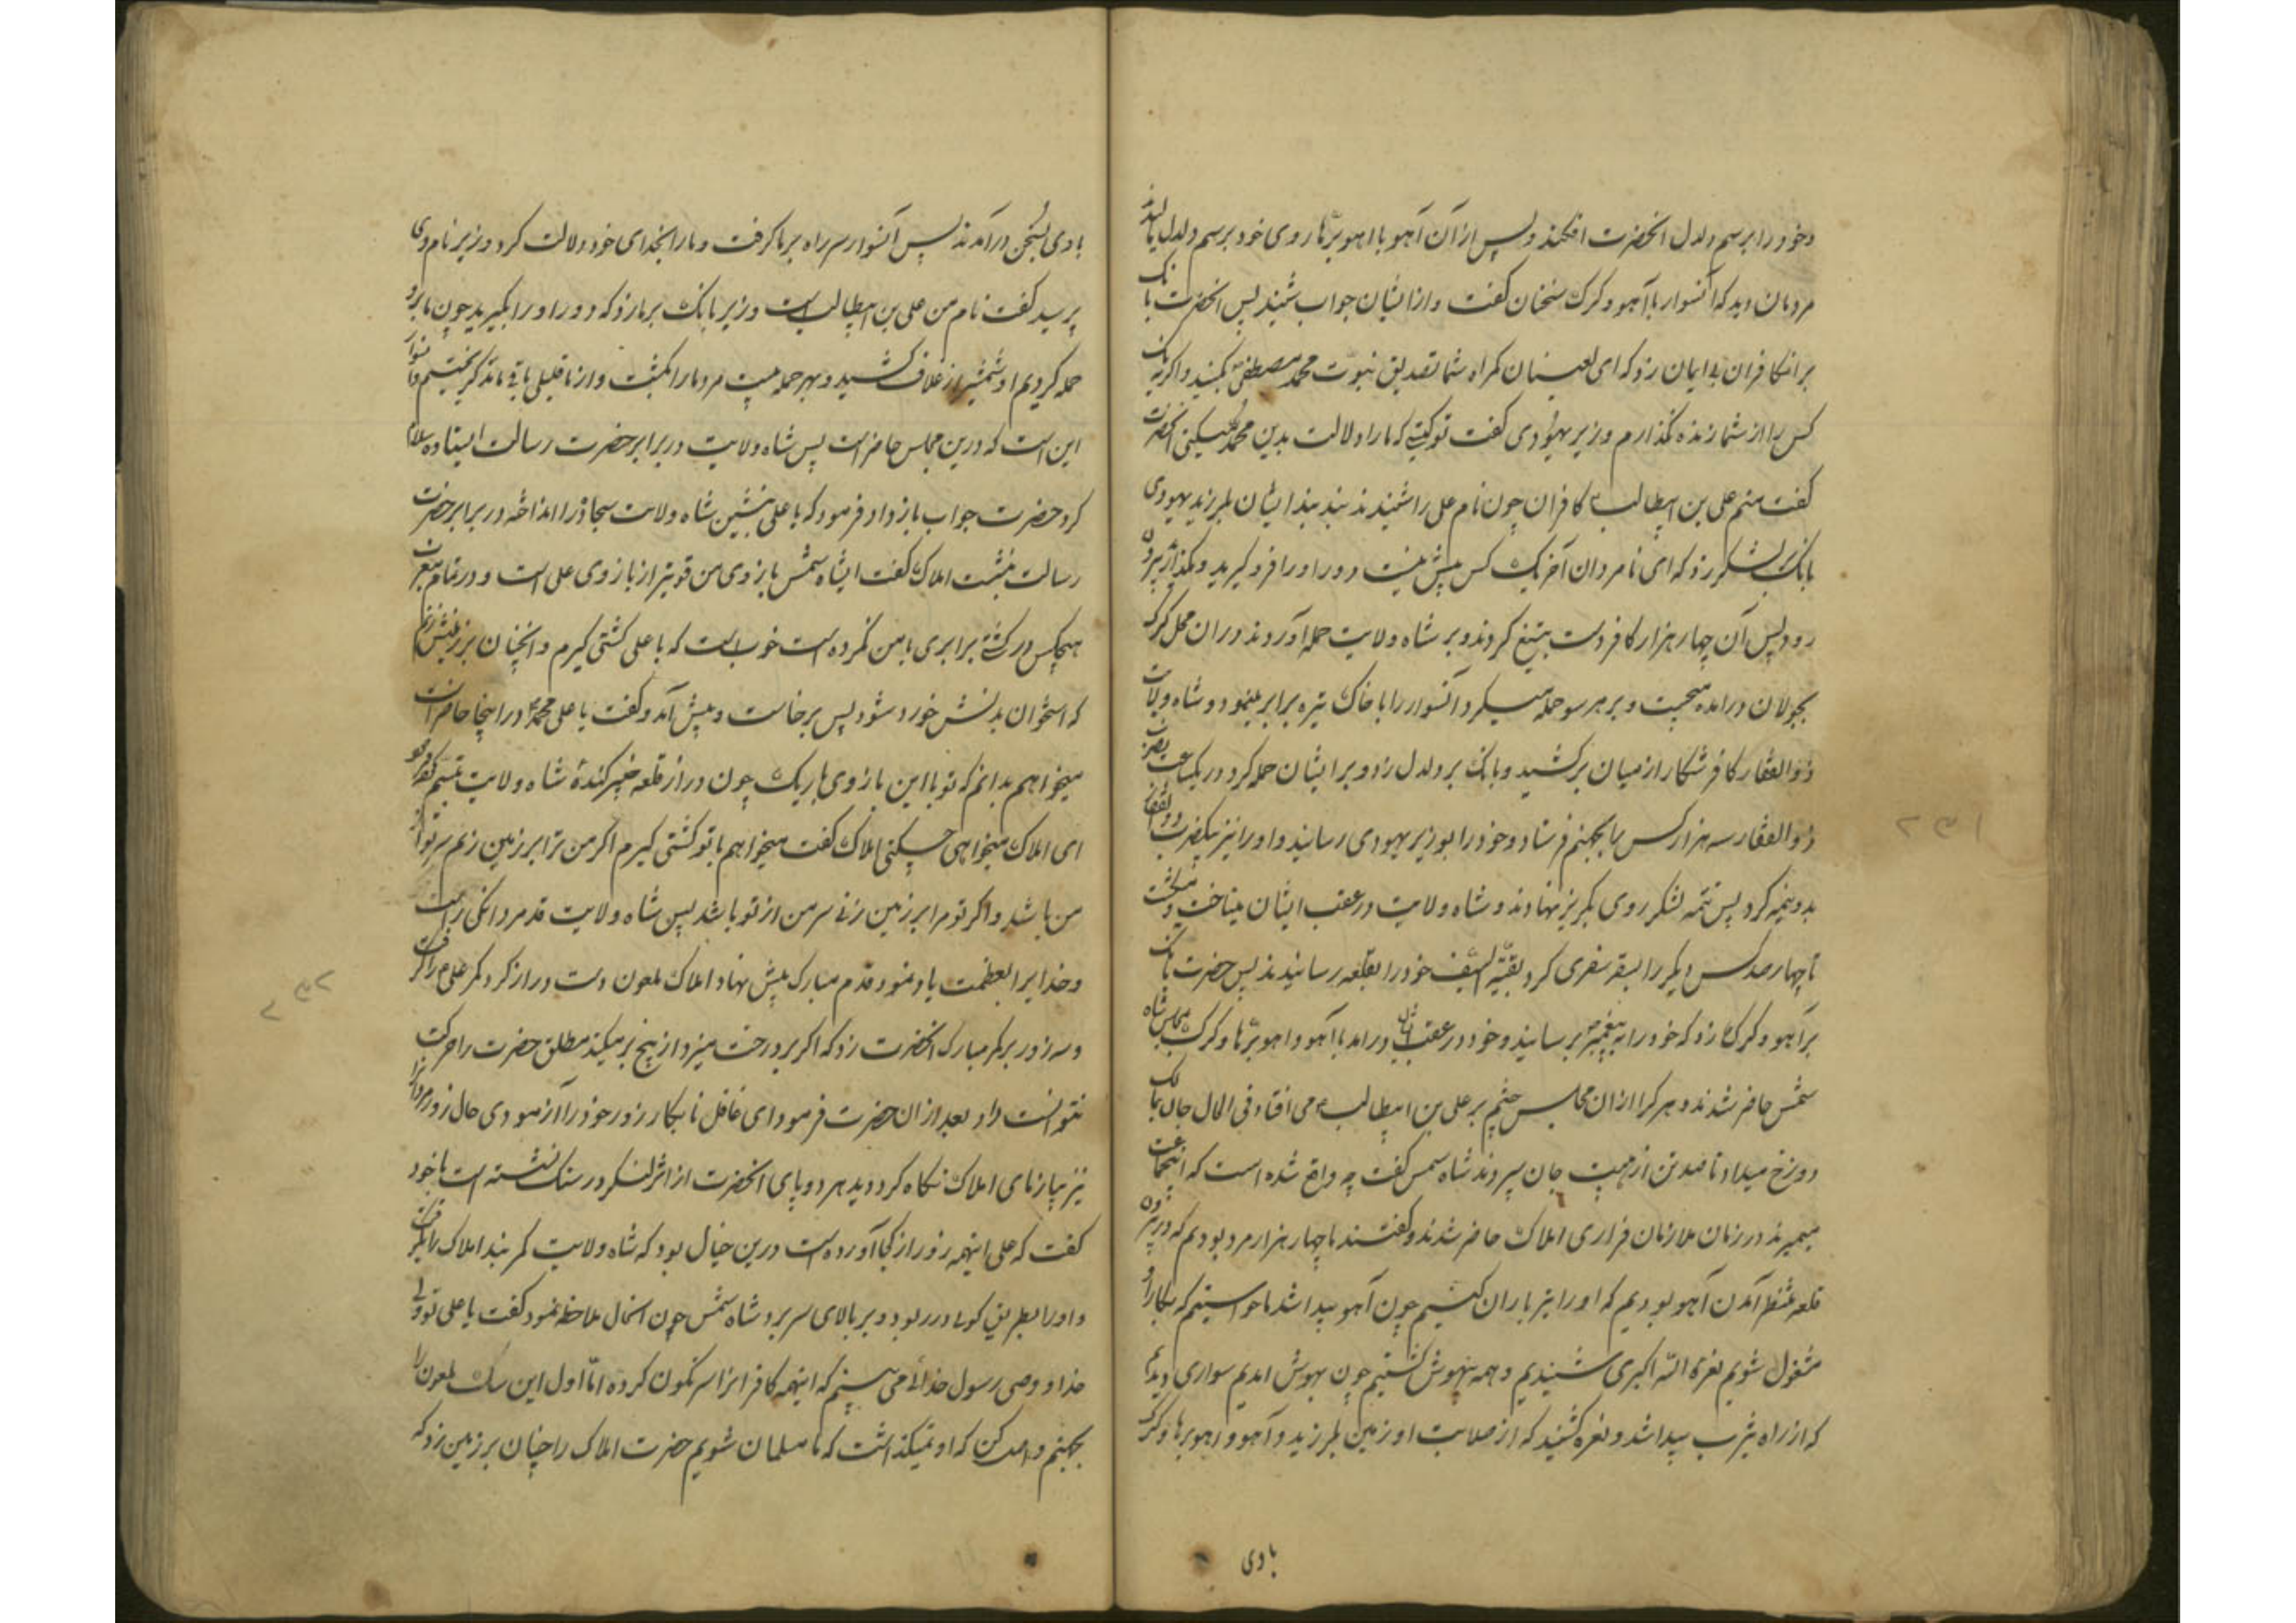 وخود را برسم دلدل انحضرت افکند و پس از آن آهو با اهو برّها روی خود برسم دلدل مالید
مردمان دید که آنسوار با آهو و کرک سخنان کفت و از ایشان جواب شنید پس انحضرت بانک
بر انکافران بی ایمان زد که ای لعینان کمراه شما تصدیق نبوت محمد مصطفی بکنید و اکر نه یک
کس را از شما زنده نکذارم وزیر یهودی کفت تو کیستی که ما را دلالت بدین محمد میکنی انحضرت
کفت منم علی بن ابیطالب کافران چون نام علی را شنیدند بند بند ایشان بلرزید یهودی
بانک بر لشکر زد که ای نامردان آخر یک کس بیش نیست دور او را فرو کیرید و مکذارید بیرون
رود پس آن چهار هزار کافر دست بتیغ کردند و بر شاه ولایت حمله آوردند در ان محل کرک
بجولان درامده میجست و بر هر سو حمله میکرد و آنسوار را با خاک تیره برابر مینمود و شاه ولایت
ذوالفقار کافر شکار از میان برکشید و بانک بر دلدل زد و بر ایشان حمله کرد در یکساعت بضرب
ذوالفقار سه هزار کس را بجهنم فرستاد و خود را بوزیر یهودی رسانید و او را نیز بیکضرب ذوالفقار
بدو نیمه کرد پس تتمه لشکر روی بکریز نهادند و شاه ولایت در عقب ایشان میتاخت و میکشت
تا چهار صد کس دیکر را بسقر سفری کرد بقیّة السّیف خود را بقلعه رسانیدند پس حضرت بانک
بر آهو و کرک زد که خود را به پیغمبر برسانید و خود در عقب ایشان درامد با آهو و اهو برّها و کرک بمجلس شاه
شمس حاضر شدند و هر کرا از ان مجلس چشم بر علی بن ابیطالب می افتاد فی الحال جان بمالک
دوزخ میداد تا صد تن از هیبت جان سپردند شاه شمس کفت چه واقع شده است که اینجماعت
میمیرند در زمان ملازمان فراری املاک حاضر شدند و کفتند ما چهار هزار مرد بودیم که در بیرون
قلعه منتظر آمدن آهو بودیم که او را تیر باران کنیم چون آهو پیدا شد ما خواستیم که بکار او
مشغول شویم نعرهٔ اللّه اکبری شنیدیم و همه بیهوش کشتیم چون بهوش امدیم سواری دیدیم
که از راه یثرب پیدا شد و نعره کشید که از صلابت او زمین بلرزید و آهو و اهو برها و کرک
بادی
بادی بسخن درآمدند پس آنسوار سر راه بر ما کرفت و ما را بخدای خود دلالت کرد وزیر نام وی
پرسید کفت نام من علی بن ابیطالب است وزیر بانک بر ما زد که دور او را بکیرید چون ما برو
حمله کردیم او شمشیر از غلاف کشید و بهر حمله بیست مرد ما را بکشت و از ما قلیل باقی ماند کریختیم و آنسوار
این است که درین مجلس حاضر است پس شاه ولایت در برابر حضرت رسالت ایستاده سلام
کرد حضرت جواب باز داد فرمود که یا علی بنشین شاه ولایت سجاده را انداخته در برابر حضرت
رسالت بنشست املاک کفت ایشاه شمس بازوی من قویتر از بازوی علی است و در تمام مغرب
هیچکس در کشتی برابری با من نکرده است خوب است که با علی کشتی کیرم و انچنان بر زمینش زنم
که استخوان بدنش خورد شود پس برخاست و پیش آمد و کفت یا علی محمد در اینجا حاضر است
میخواهم بدانم که تو با این بازوی باریک چون در از قلعه خیبر کندهٔ شاه ولایت تبسم فرمود کفت
ای املاک میخواهی چه کنی املاک کفت میخواهم با تو کشتی کیرم اکر من ترا بر زمین زنم سر تو از
من باشد و اکر تو مرا بر زمین زنی سر من از تو باشد پس شاه ولایت قد مردانکی راست
و خدایرا بعظمت یاد نمود و قدم مبارک پیش نهاد املاک ملعون دست دراز کرد کمر علی را کرفت
و سه زور بر کمر مبارک انحضرت زد که اکر بر درخت میزد از بیخ بر میکند مطلق حضرت را حرکت
نتوانست داد بعد از ان حضرت فرمود ای غافل نابکار زور خود را آزمودی حال زور مردان را
نیز بیازمای املاک نکاه کرد دید هر دو پای انحضرت از اثر لنکر در سنک نشسته است با خود
کفت که علی اینهمه زور از کجا آورده است درین خیال بود که شاه ولایت کمر بند املاک را بکرفت
و او را بطریق کوی در ربود و بر بالای سر برد شاه شمس چون انحال ملاحظه نمود کفت یا علی تو ولی
خدا و وصی رسول خدائی می بینم که اینهمه کافرانرا سرنکون کرده امّا اول این سک ملعون را
بجهنم واصل کن که او نمیکذاشت که ما مسلمان شویم حضرت املاک را چنان بر زمین زد که